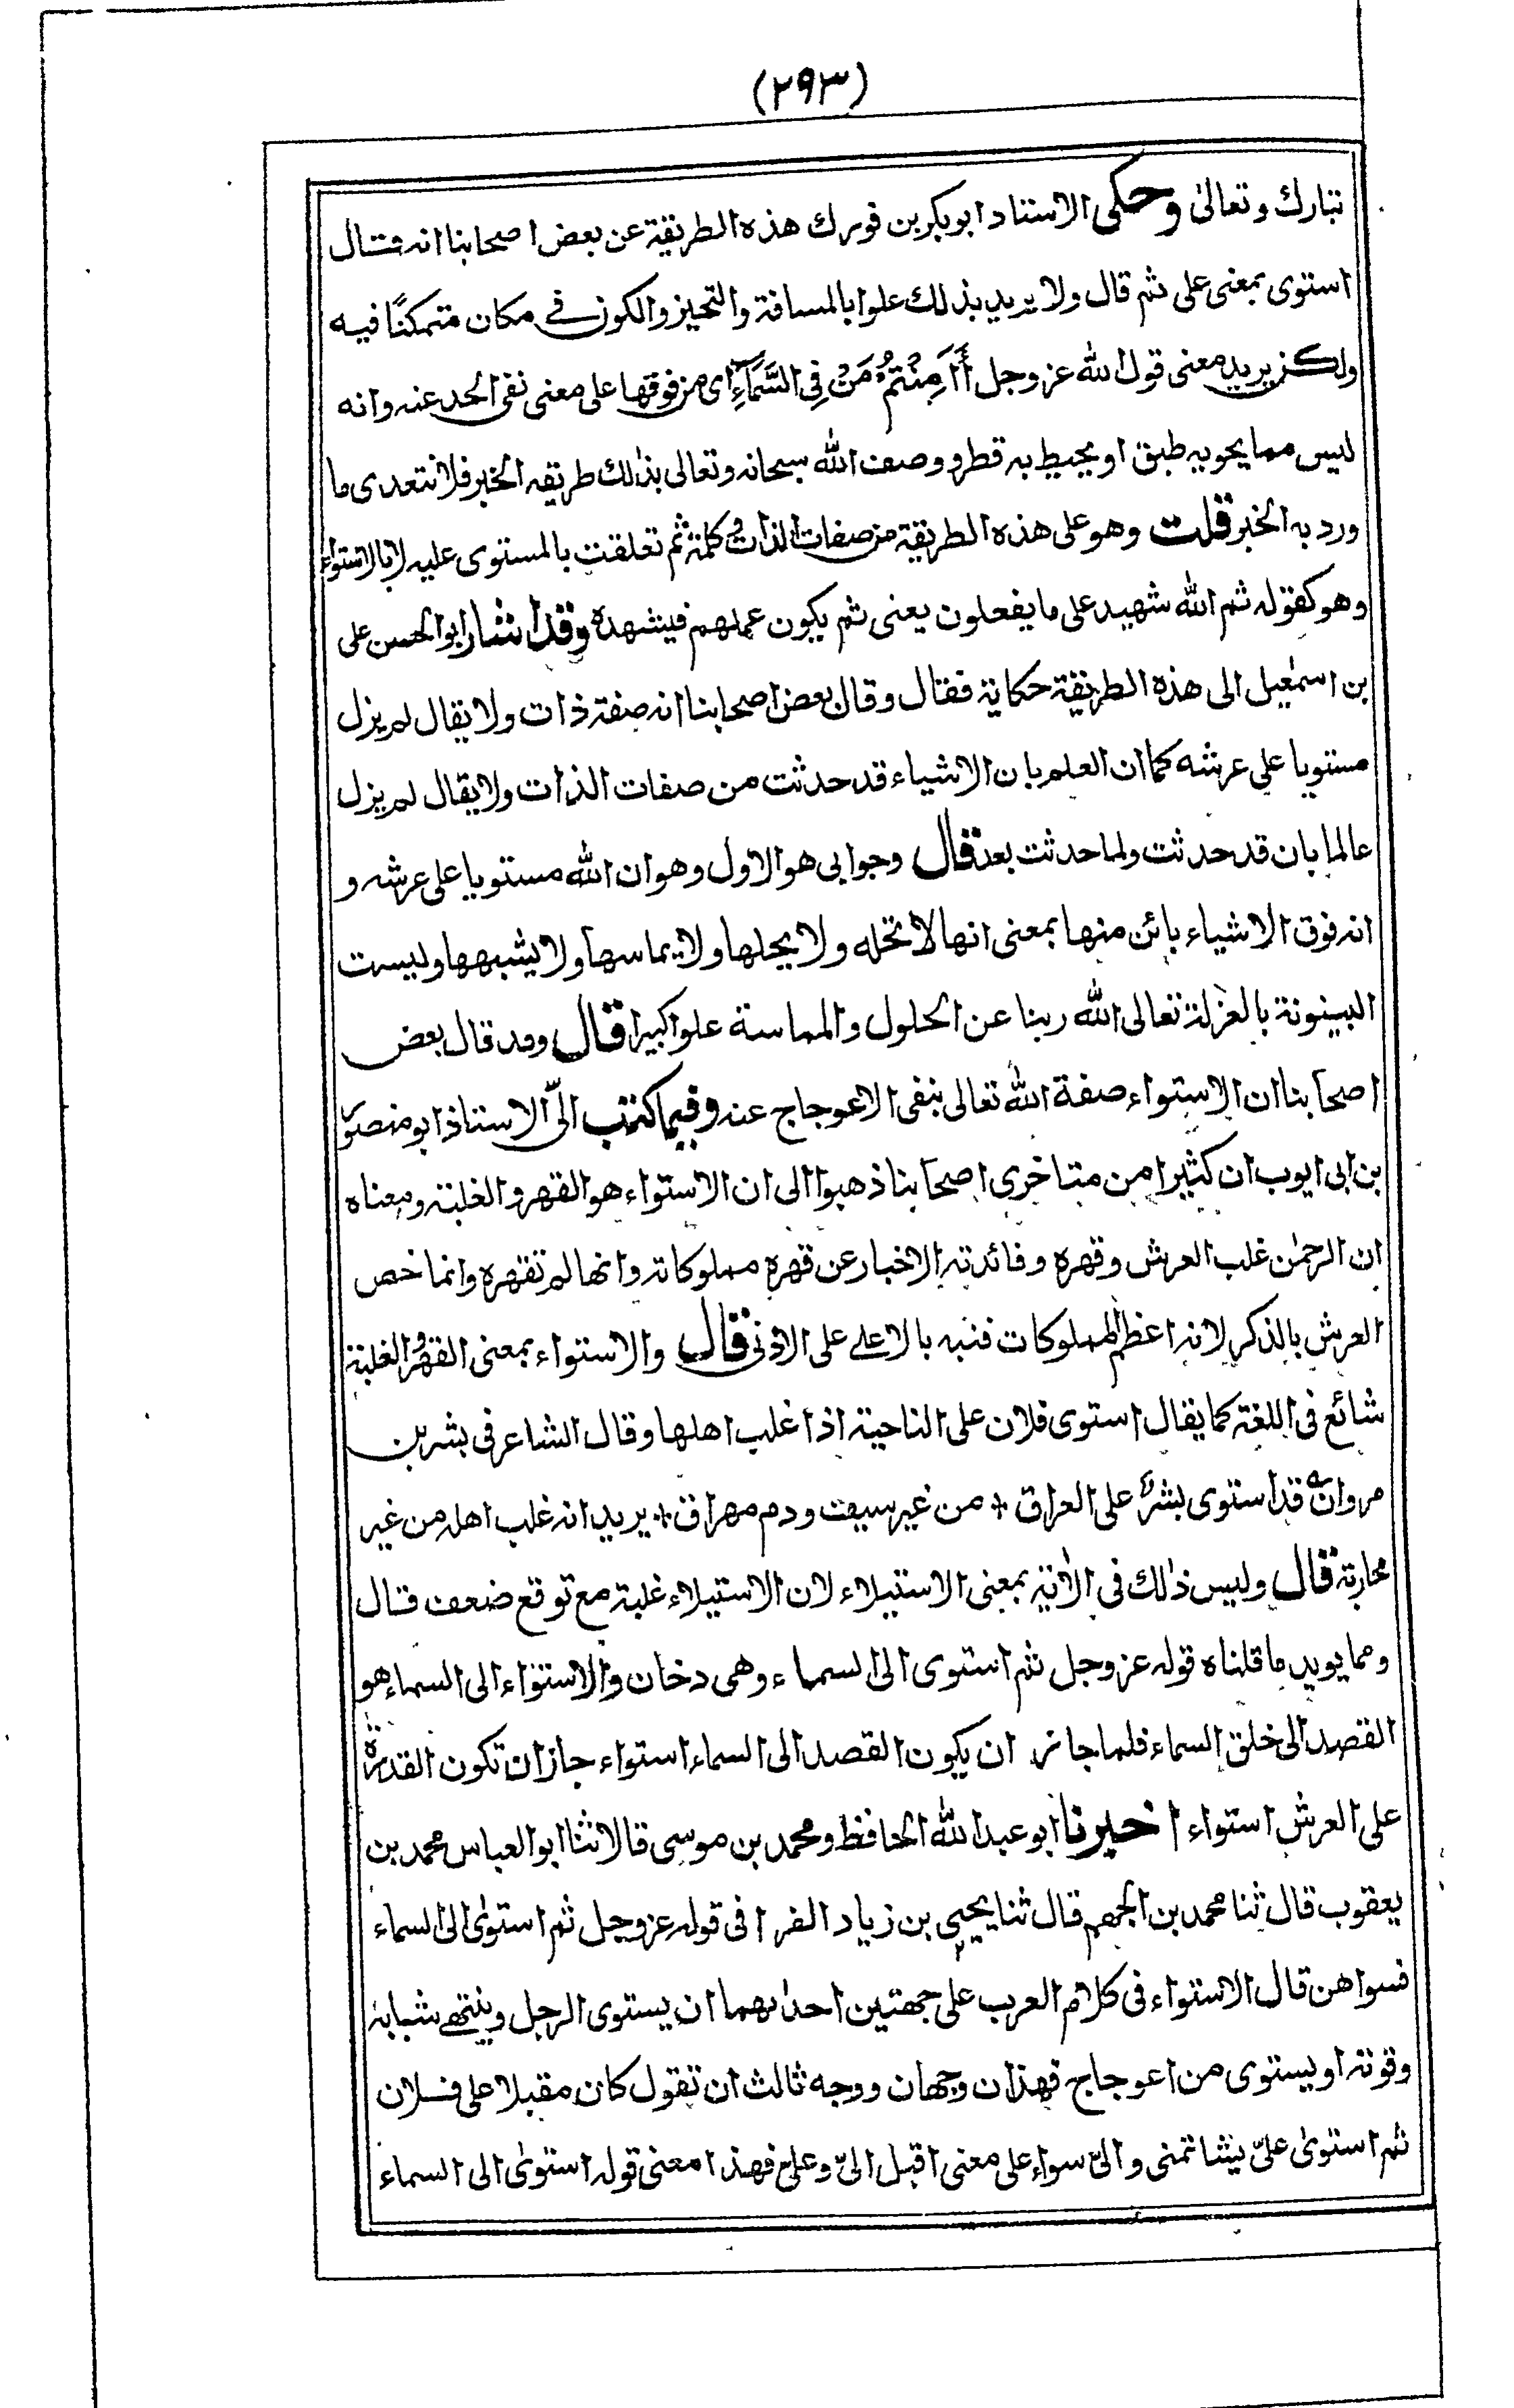 (٢٩٣)
تبارك وتعالىٰ وحكى الاستاد ابوبكر بن فورك هذه الطريقة عن بعض اصحابنا انه قال
استوى بمعنى على ثم قال ولا يريد بذلك علوا بالمسافة والتحيز والكون فى مكان متمكنًا فيه
ولكن يريد معنى قول الله عز وجل أَأَمِنْتُمْ مَنْ فِى السَّمَآءِ اى من فوقها على معنى نفى الحد عنه وانه
ليس مما يحويه طبق او يحيط به قطر ووصف الله سبحانه وتعالى بذٰلك طريقه الخبر فلا نتعدى ما
ورد به الخبر قلت وهو على هذه الطريقة من صفات الذات وكلمة ثم تعلقت بالمستوى عليه لا بالاستواء
وهو كقوله ثم الله شهيد على ما يفعلون يعنى ثم يكون عملهم فيشهده وقد اشار ابو الحسن على
بن اسمٰعيل الى هذه الطريقة حكاية فقال وقال بعض اصحابنا انه صفة ذات ولا يقال لم يزل
مستويا على عرشه كما ان العلم بان الاشياء قد حدثت من صفات الذات ولا يقال لم يزل
عالما بان قد حدثت ولما حدثت بعد قال وجوابى هو الاول وهو ان الله مستويا على عرشه و
انه فوق الاشياء بائن منها بمعنى انها لا تحله ولا يحلها ولا يماسها ولا يشبهها وليست
البينونة بالعزلة تعالى الله ربنا عن الحلول والمماسة علوا كبيرا قال وقد قال بعض
اصحابنا ان الاستواء صفة الله تعالى بنفى الاعوجاج عنه وفيما كتب الىّ الاستاذ ابو منصور
بن ابى ايوب ان كثيرا من متاخرى اصحابنا ذهبوا الى ان الاستواء هو القهر والغلبة ومعناه
ان الرحمٰن غلب العرش وقهره وفائدته الاخبار عن قهره مملوكاته وانها لم تقهره وانما خص
العرش بالذكر لانه اعظم المملوكات فنبه بالاعلے على الادنى قال والاستواء بمعنى القهر والغلبة
شائع فى اللغة كما يقال استوى فلان على الناحية اذا غلب اهلها وقال الشاعر فى بشر بن
مروان قد استوى بشر على العراق * من غير سيف ودم مهراق * يريد انه غلب اهله من غير
محاربة قال وليس ذٰلك فى الاٰية بمعنى الاستيلاء لان الاستيلاء غلبة مع توقع ضعف قال
ومما يويد ما قلناه قوله عز وجل ثم استوى الى السماء وهى دخان والاستواء الى السماء هو
القصد الى خلق السماء فلما جاز ان يكون القصد الى السماء استواء جاز ان تكون القدرة
على العرش استواء اخبرنا ابو عبد الله الحافظ ومحمد بن موسى قالا نثا ابو العباس محمد بن
يعقوب قال ثنا محمد بن الجهم قال ثنا يحيى بن زياد الفرا فى قوله عز وجل ثم استوىٰ الى السماء
فسواهن قال الاستواء فى كلام العرب على جهتين احداهما ان يستوى الرجل وينتهى شبابه
وقوته او يستوى من اعوجاج فهذان وجهان ووجه ثالث ان تقول كان مقبلا على فلان
ثم استوىٰ علىّ يشاتمنى والىّ سواء على معنى اقبل الىّ وعلىّ فهذا معنى قوله استوىٰ الى السماء